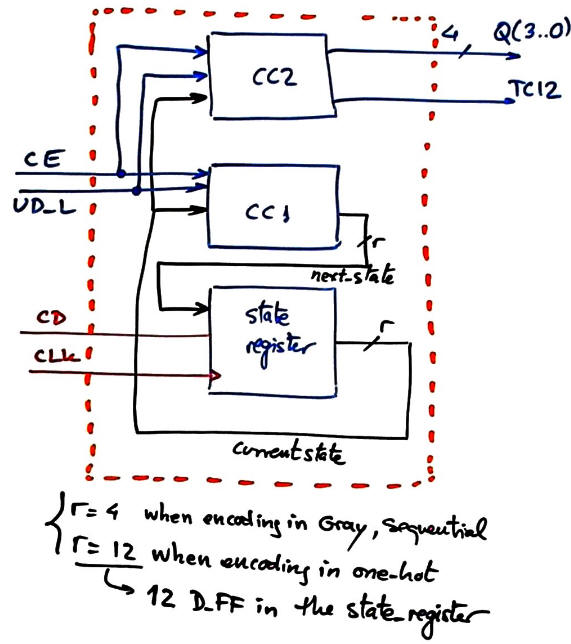 4 Q(3..0)
CC2
TC12
CE
UD_L
CC1
r
next_state
CD
state
register
r
CLK
current state
r = 4 when encoding in Gray, sequential
r = 12 when encoding in one-hot
12 D_FF in the state_register